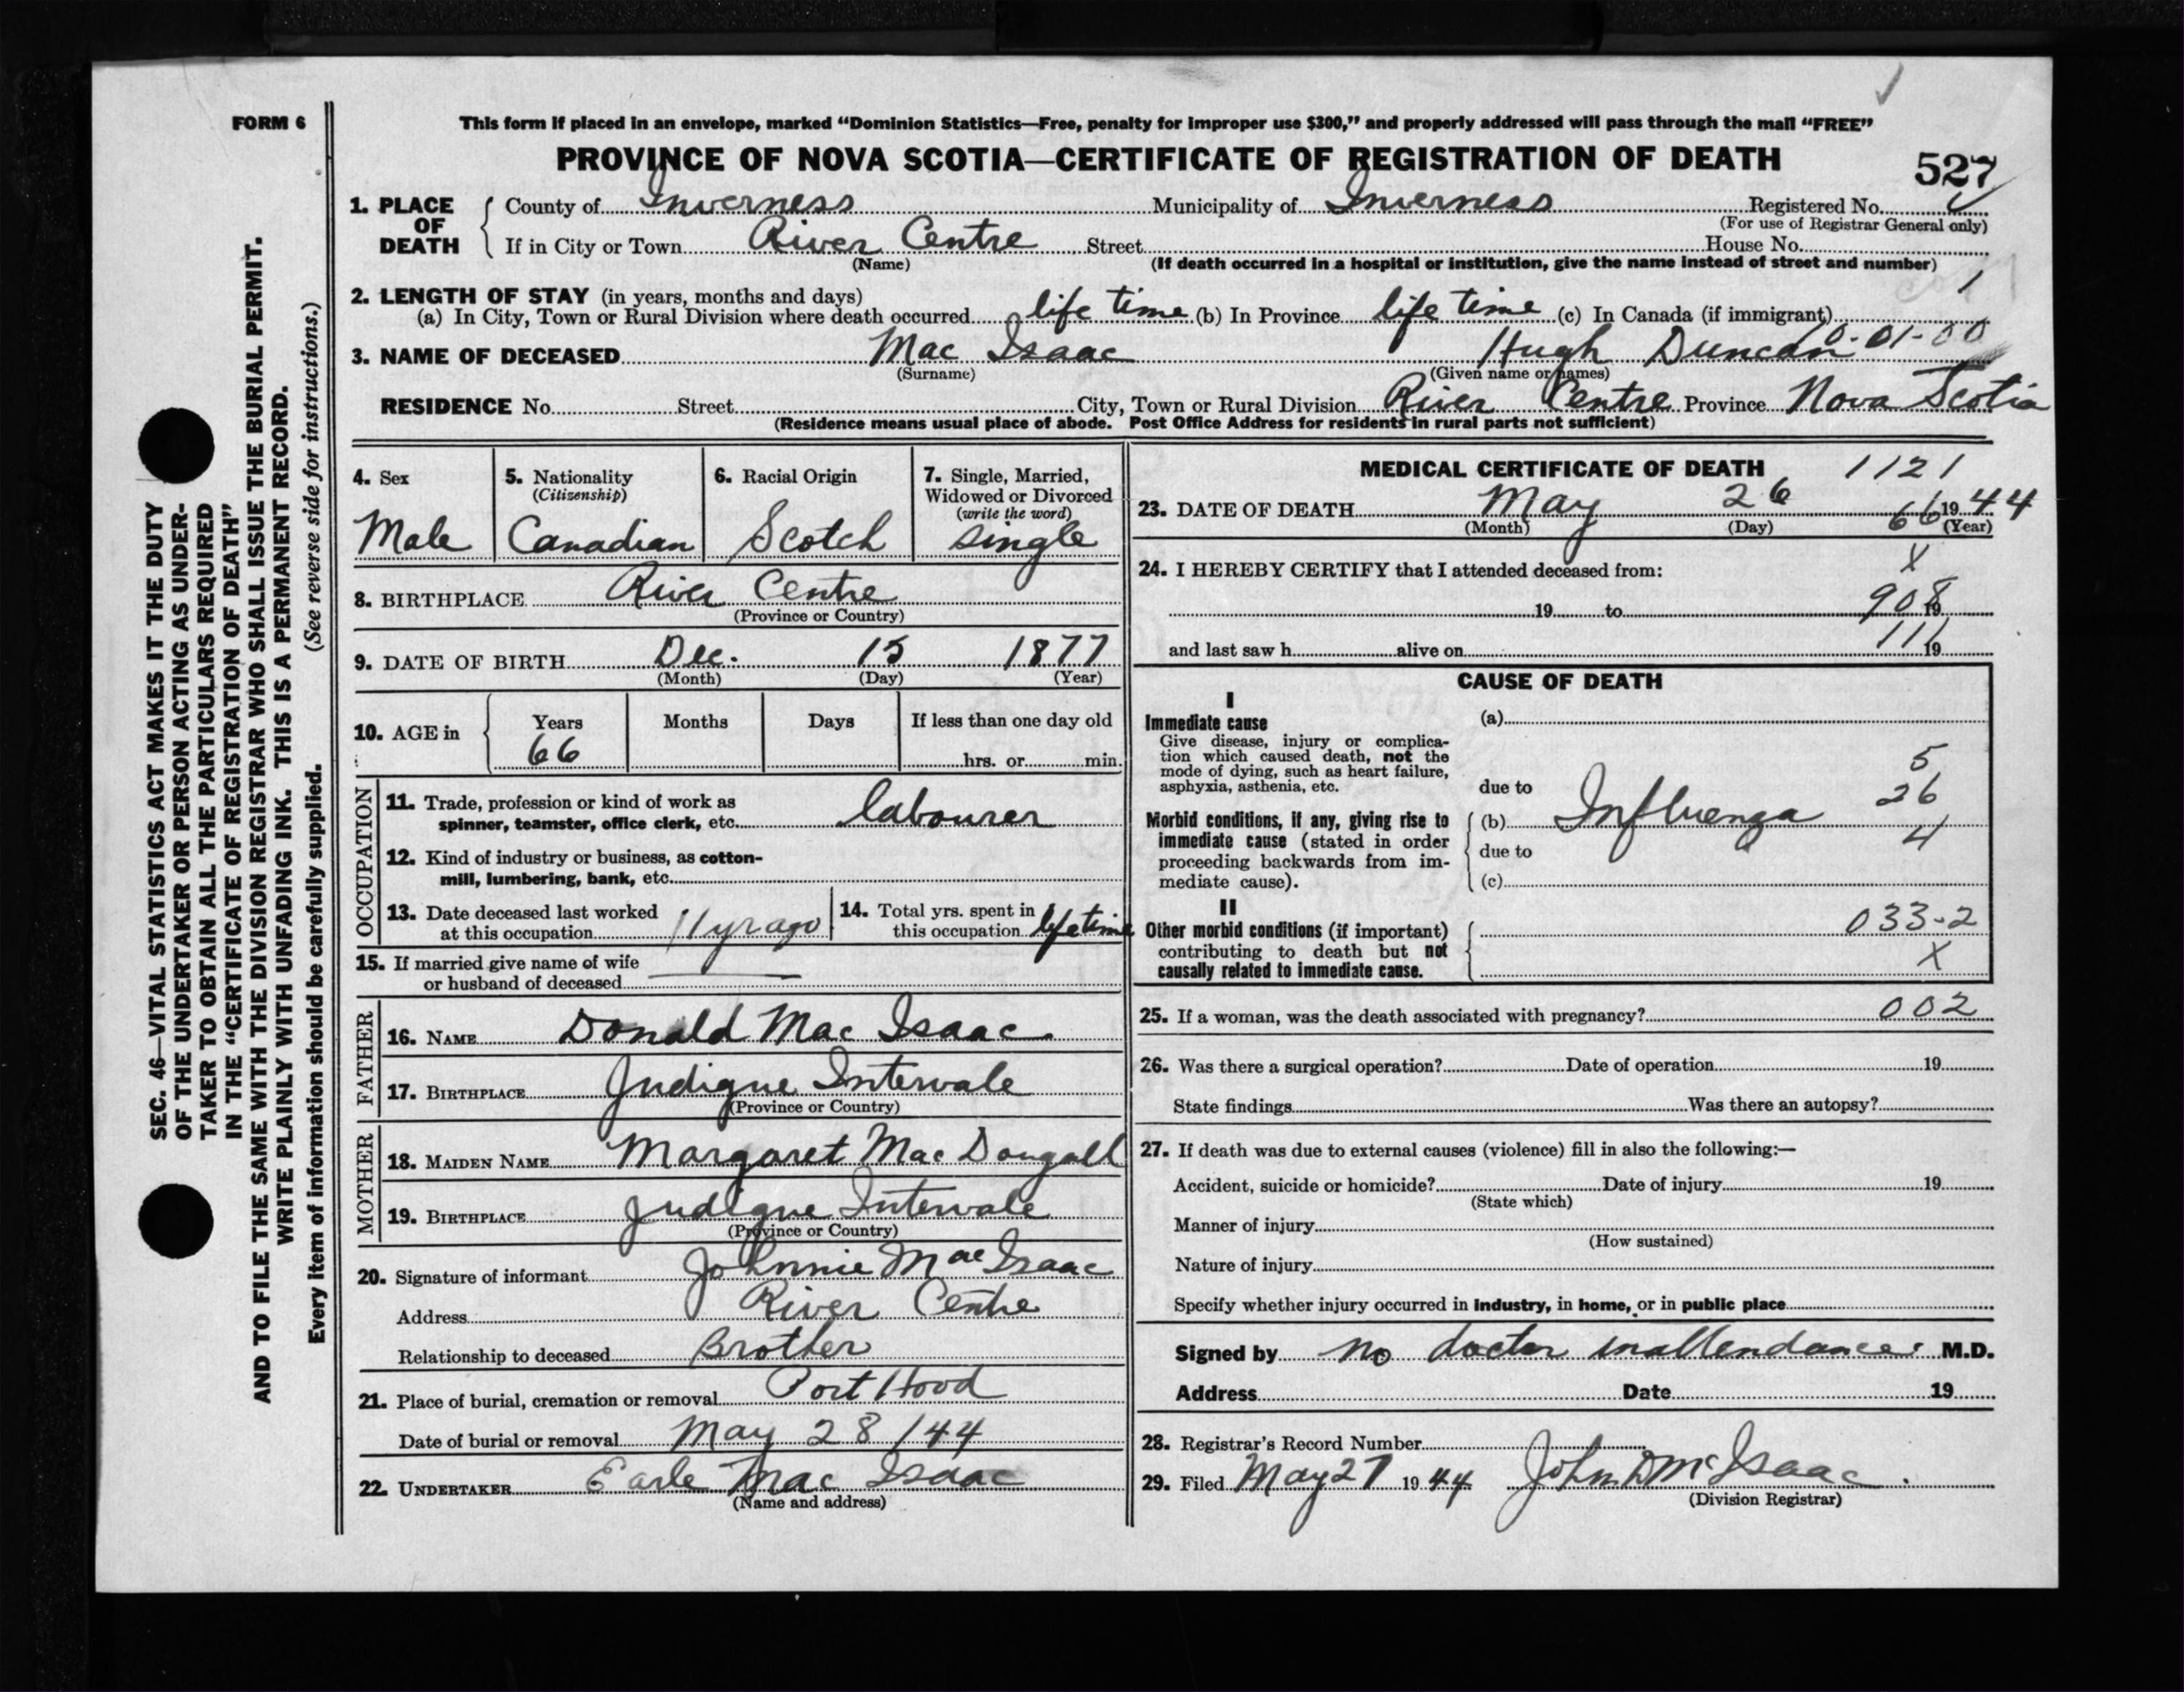 FORM 6
This form if placed in an envelope, marked “Dominion Statistics—Free, penalty for improper use $300,” and properly addressed will pass through the mail “FREE”
PROVINCE OF NOVA SCOTIA—CERTIFICATE OF REGISTRATION OF DEATH
527
1. PLACE OF DEATH
County of Inverness Municipality of Inverness Registered No.
(For use of Registrar General only)
If in City or Town River Centre Street House No.
(Name) (If death occurred in a hospital or institution, give the name instead of street and number)
2. LENGTH OF STAY (in years, months and days) 1
(a) In City, Town or Rural Division where death occurred life time (b) In Province life time (c) In Canada (if immigrant)
3. NAME OF DECEASED Mac Isaac Hugh Duncan 0-01-00
(Surname) (Given name or names)
RESIDENCE No. Street City, Town or Rural Division River Centre Province Nova Scotia
(Residence means usual place of abode. Post Office Address for residents in rural parts not sufficient)
4. Sex
Male
5. Nationality
(Citizenship)
Canadian
6. Racial Origin
Scotch
7. Single, Married,
Widowed or Divorced
(write the word)
single
8. BIRTHPLACE River Centre
(Province or Country)
9. DATE OF BIRTH Dec. 15 1877
(Month) (Day) (Year)
10. AGE in Years Months Days If less than one day old
66 hrs. or min.
OCCUPATION
11. Trade, profession or kind of work as
spinner, teamster, office clerk, etc. labourer
12. Kind of industry or business, as cotton-
mill, lumbering, bank, etc.
13. Date deceased last worked
at this occupation 11 yr ago
14. Total yrs. spent in
this occupation life time
15. If married give name of wife
or husband of deceased
FATHER
16. NAME Donald Mac Isaac
17. BIRTHPLACE Judique Intervale
(Province or Country)
MOTHER
18. MAIDEN NAME Margaret Mac Dougall
19. BIRTHPLACE Judique Intervale
(Province or Country)
20. Signature of informant Johnnie Mac Isaac
Address River Centre
Relationship to deceased Brother
21. Place of burial, cremation or removal Port Hood
Date of burial or removal May 28/44
22. UNDERTAKER Earle Mac Isaac
(Name and address)
MEDICAL CERTIFICATE OF DEATH 1121
23. DATE OF DEATH May 26 1944
(Month) (Day) 66 (Year)
24. I HEREBY CERTIFY that I attended deceased from: X
19 to 19 908
and last saw h alive on 19 111
CAUSE OF DEATH
I
Immediate cause
Give disease, injury or complica-
tion which caused death, not the
mode of dying, such as heart failure,
asphyxia, asthenia, etc.
(a)
5
due to 26
Morbid conditions, if any, giving rise to
immediate cause (stated in order
proceeding backwards from im-
mediate cause).
(b) Influenza 4
due to
(c)
II
Other morbid conditions (if important)
contributing to death but not
causally related to immediate cause.
033-2
X
25. If a woman, was the death associated with pregnancy? 002
26. Was there a surgical operation? Date of operation 19
State findings Was there an autopsy?
27. If death was due to external causes (violence) fill in also the following:—
Accident, suicide or homicide? Date of injury 19
(State which)
Manner of injury
(How sustained)
Nature of injury
Specify whether injury occurred in industry, in home, or in public place
Signed by no doctor in attendance. M.D.
Address Date 19
28. Registrar's Record Number
29. Filed May 27 1944 John D McIsaac.
(Division Registrar)
SEC. 46—VITAL STATISTICS ACT MAKES IT THE DUTY
OF THE UNDERTAKER OR PERSON ACTING AS UNDER-
TAKER TO OBTAIN ALL THE PARTICULARS REQUIRED
IN THE “CERTIFICATE OF REGISTRATION OF DEATH”
AND TO FILE THE SAME WITH THE DIVISION REGISTRAR WHO SHALL ISSUE THE BURIAL PERMIT.
WRITE PLAINLY WITH UNFADING INK. THIS IS A PERMANENT RECORD.
Every item of information should be carefully supplied. (See reverse side for instructions.)